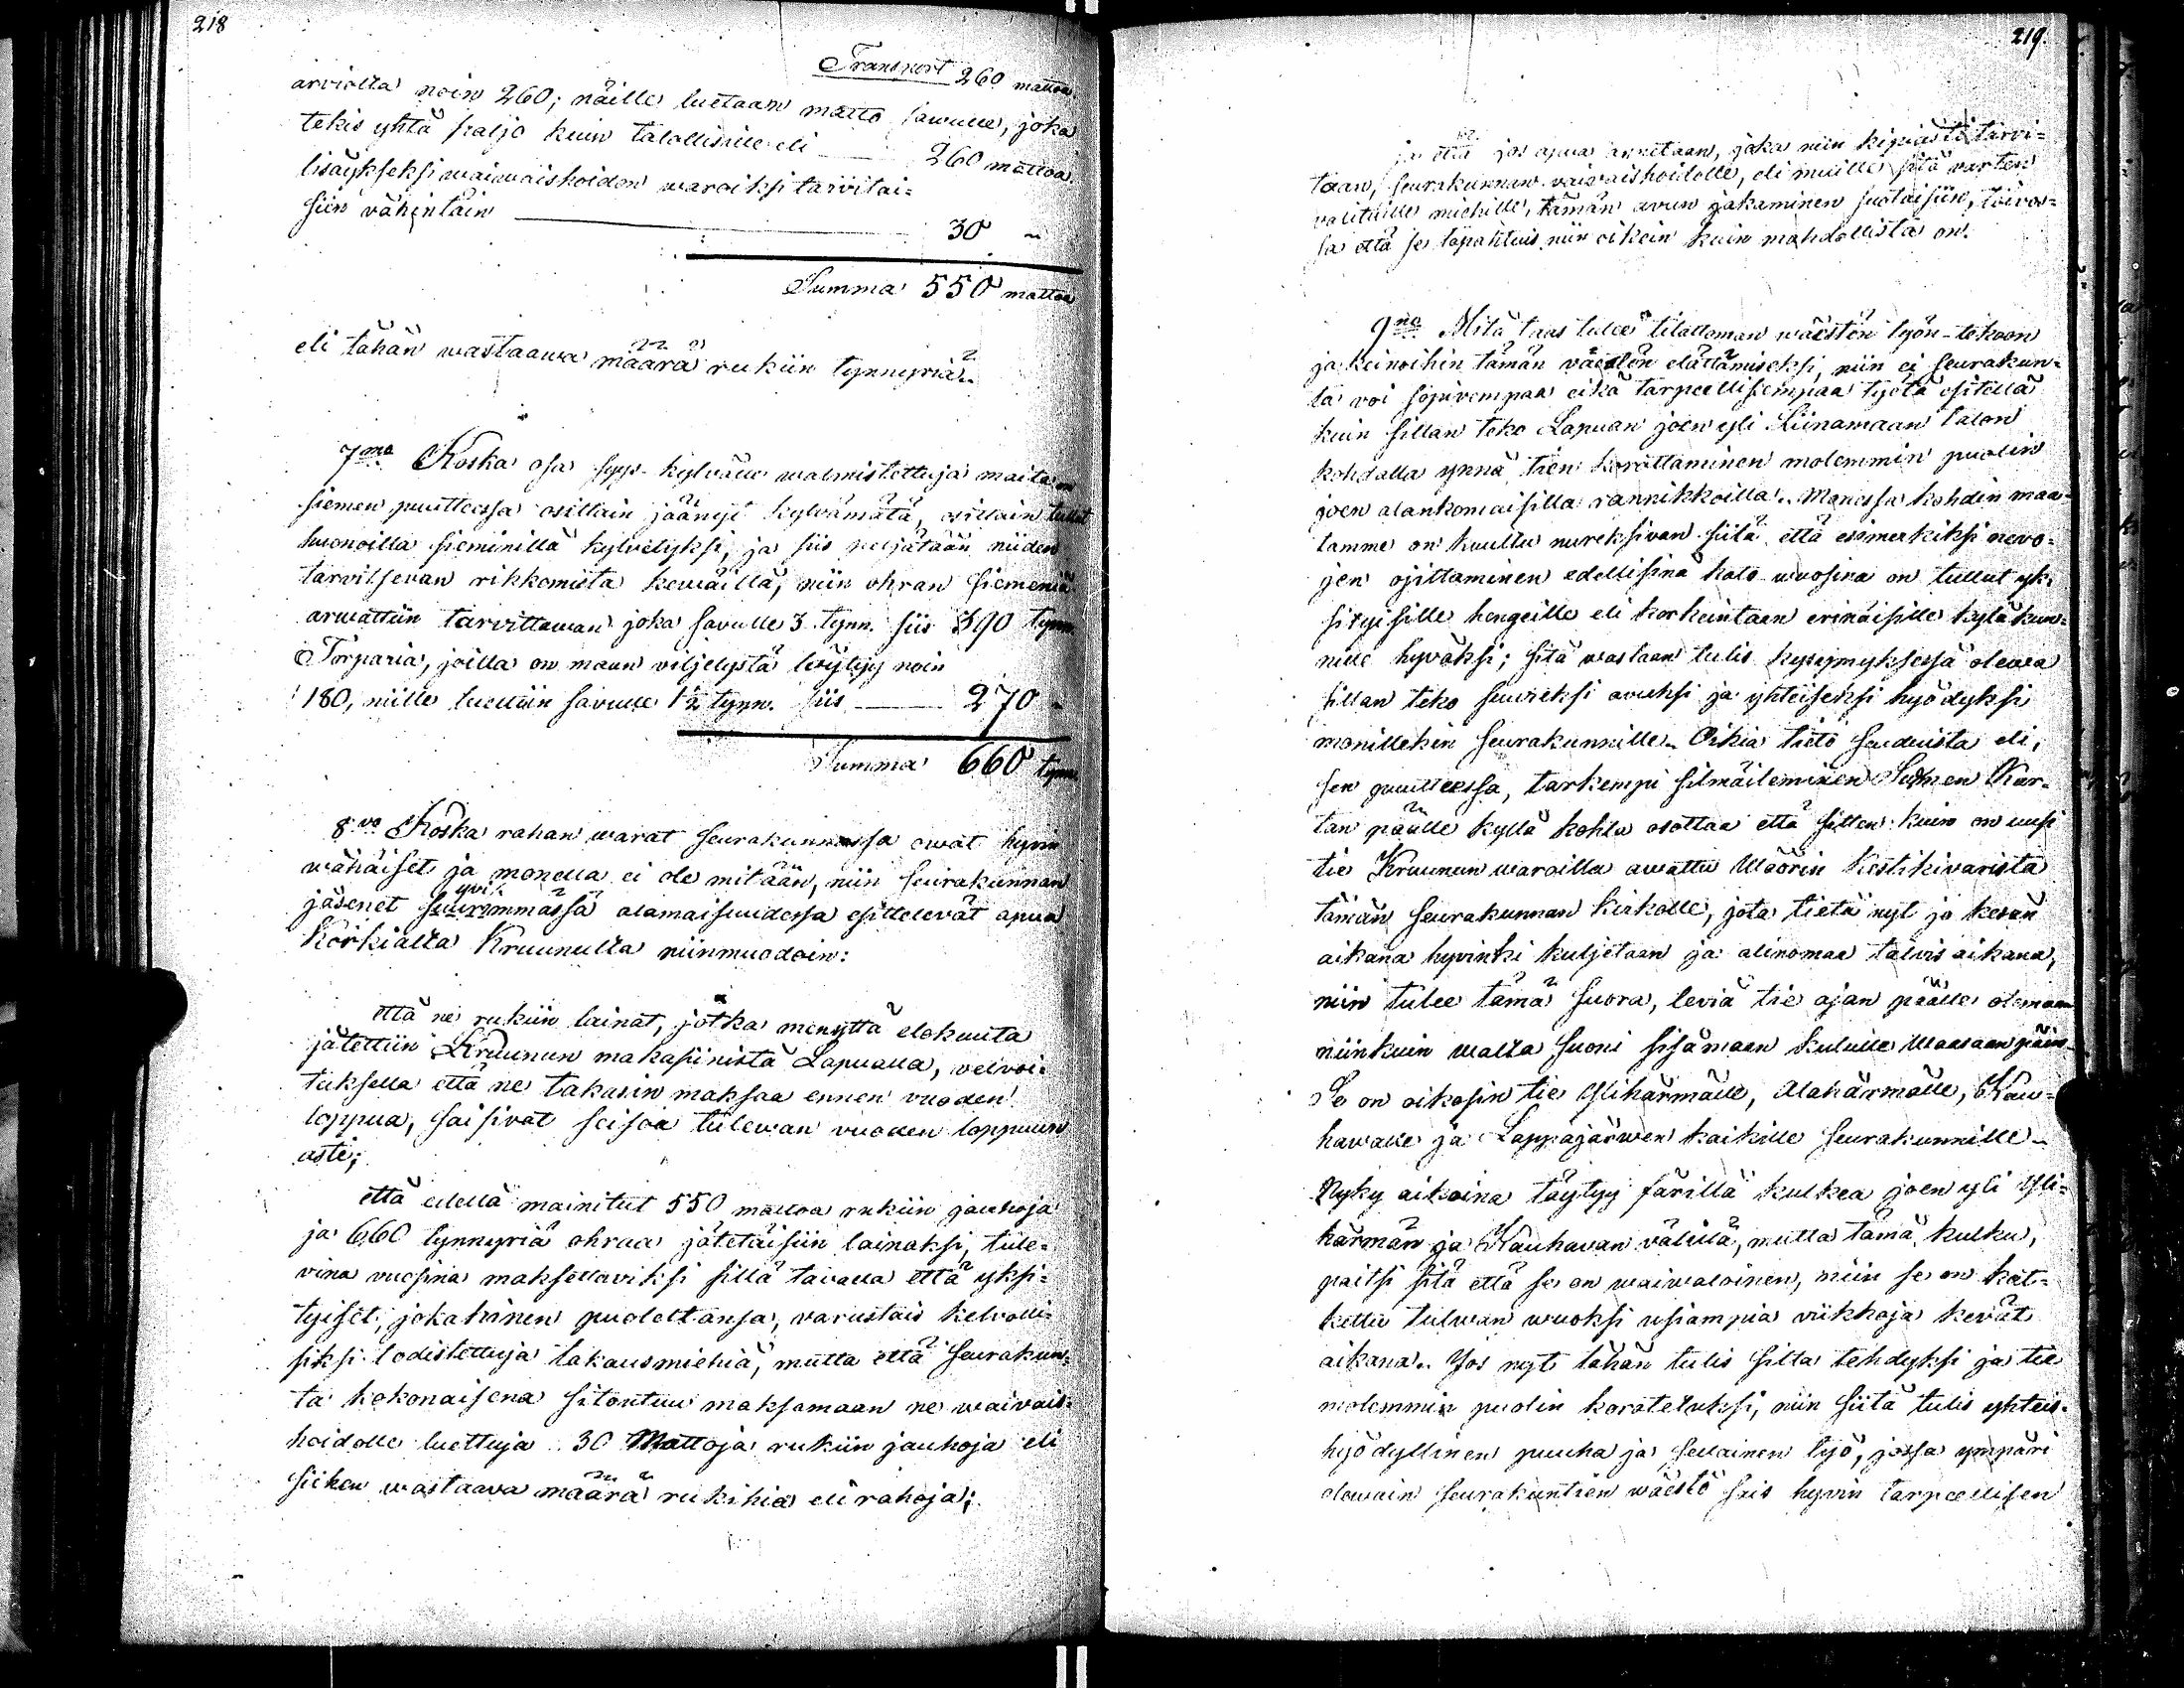 218
Transport 260 mattoa
arviolta noin 260; näille luetaan matto sawulle, joka
tekis yhtä paljo kuin talollisille eli — 260 mattoa.
lisäykseksi waiwaishoidon waroiksi tarvitai=
siin vähintäin — 30 "
Summa 550 mattoa
eli tähän wastaawa määrä rukiin tynnyriä.
7mo Koska osa syys-kylvöön walmistettuja maita on
siemen puutteessa osittain jäänyt kylvämätä, osittain tullut
huonoilla sieminillä kylvetyksi, ja siis peljätään niiden
tarvitsevan rikkomista kewäillä, niin ohran siemeniä
arwattiin tarvittawan joka savulle 3 tynn. siis 390 tynn.
Torparia, joilla on maan viljelystä löytyy noin
180, niille luettiin savulle 1½ tynn. siis — 270 "
Summa 660 tynn.
8vo Koska rahan warat seurakunnassa owat hyvin
wähäiset ja monella ei ole mitään, niin seurakunnan
jäsenet syvimmässä alamaisuudessa esittelevät apua
Korkialta Kruunulta niinmuodoin:
että ne rukiin lainat, jotka menyttä elokuuta
jätettiin Kruunun makasiinista Lapualla, velvoi=
tuksella että ne takasin maksaa ennen vuoden
loppua, saisivat seisoa tulewan vuoden loppuun
asti;
että edellä mainitut 550 mattoa rukiin jauhoja
ja 660 tynnyriä ohraa jätetäisiin lainaksi, tule=
vina vuosina maksettaviksi sillä tavalla että yksi=
tyiset, jokahinen puolestansa, varustais kelvolli=
siksi todistettuja takausmiehiä, mutta että seurakun=
ta kokonaisena sitoutuu maksamaan ne waivais=
hoidolle luettuja 30 Mattoja rukiin jauhoja eli
siihen wastaava määrä rukihia eli rahoja;
219.
ja että jos apua annetaan, joka niin kipiästi tarvi=
taan, seurakunnan vaivaishoidolle, eli muille sitä varten
valituille miehille, tämän avun jakaminen suotaisiin, toivos=
sa että se tapahtuis niin oikein kuin mahdollista on.
9no Mitä taas tulee tilattoman wäestön työn-tekoon
ja keinoihin tämän väestön elättämiseksi, niin ei seurakun=
ta voi sopivempaa eikä tarpeellisempaa työtä esitellä
kuin sillan teko Lapuan joen yli Liinamaan talon
kohdalla ynnä tien korottaminen molemmin puolin
joen alankomaisilla rannikkoilla. Monessa kohdin maa=
tamme on kuultu nureksivan siitä että esimerkiksi nevo=
jen ojittaminen edellisinä kato-wuosina on tullut yk=
sityisille hengeille eli korkeintaan erinäisille kyläkun=
nille hyväksi; sitä wastaan tulis kysymyksessä olewa
sillan teko suureksi avuksi ja yhteiseksi hyödyksi
monillekin seurakunnille. Oikia tieto seuduista eli,
sen puutteessa, tarkempi silmäileminen Suomen Kar=
tan päälle kyllä kohta osottaa että sitten kuin on uusi
tie Kruunun waroilla awattu Wöörin Kestikivarista
tämän seurakunnan kirkolle, jota tietä nyt jo kesän
aikana hyvinki kuljetaan ja alinomaa talvis aikana,
niin tulee tämä suora, leviä tie ajan päälle olemaan
niinkuin walta suoni sisämaan kululle Waasaan päin.
Se on oikosin tie Ylihärmälle, Alahärmälle, Kau=
hawalle ja Lappajärwen kaikille seurakunnille.
Nyky aikoina täytyy färillä kulkea joen yli Yli=
härmän ja Kauhavan välillä, mutta tämä kulku,
paitsi sitä että se on waiwaloinen, niin se on kat=
kettu tulwan wuoksi usiampia viikkoja kevät
aikana. Jos nyt tähän tulis silta tehdyksi ja tie
molemmin puolin korotetuksi, niin siitä tulis yhteis=
hyödyllinen puuha ja sellainen työ, jossa ympäri
olewain seurakuntien wäestö sais hyvin tarpeellisen